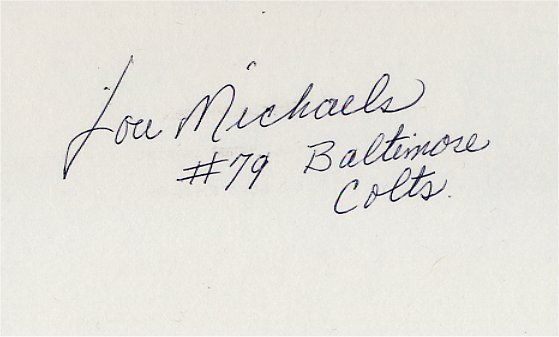 Lou Michaels
#79 Baltimore
Colts.